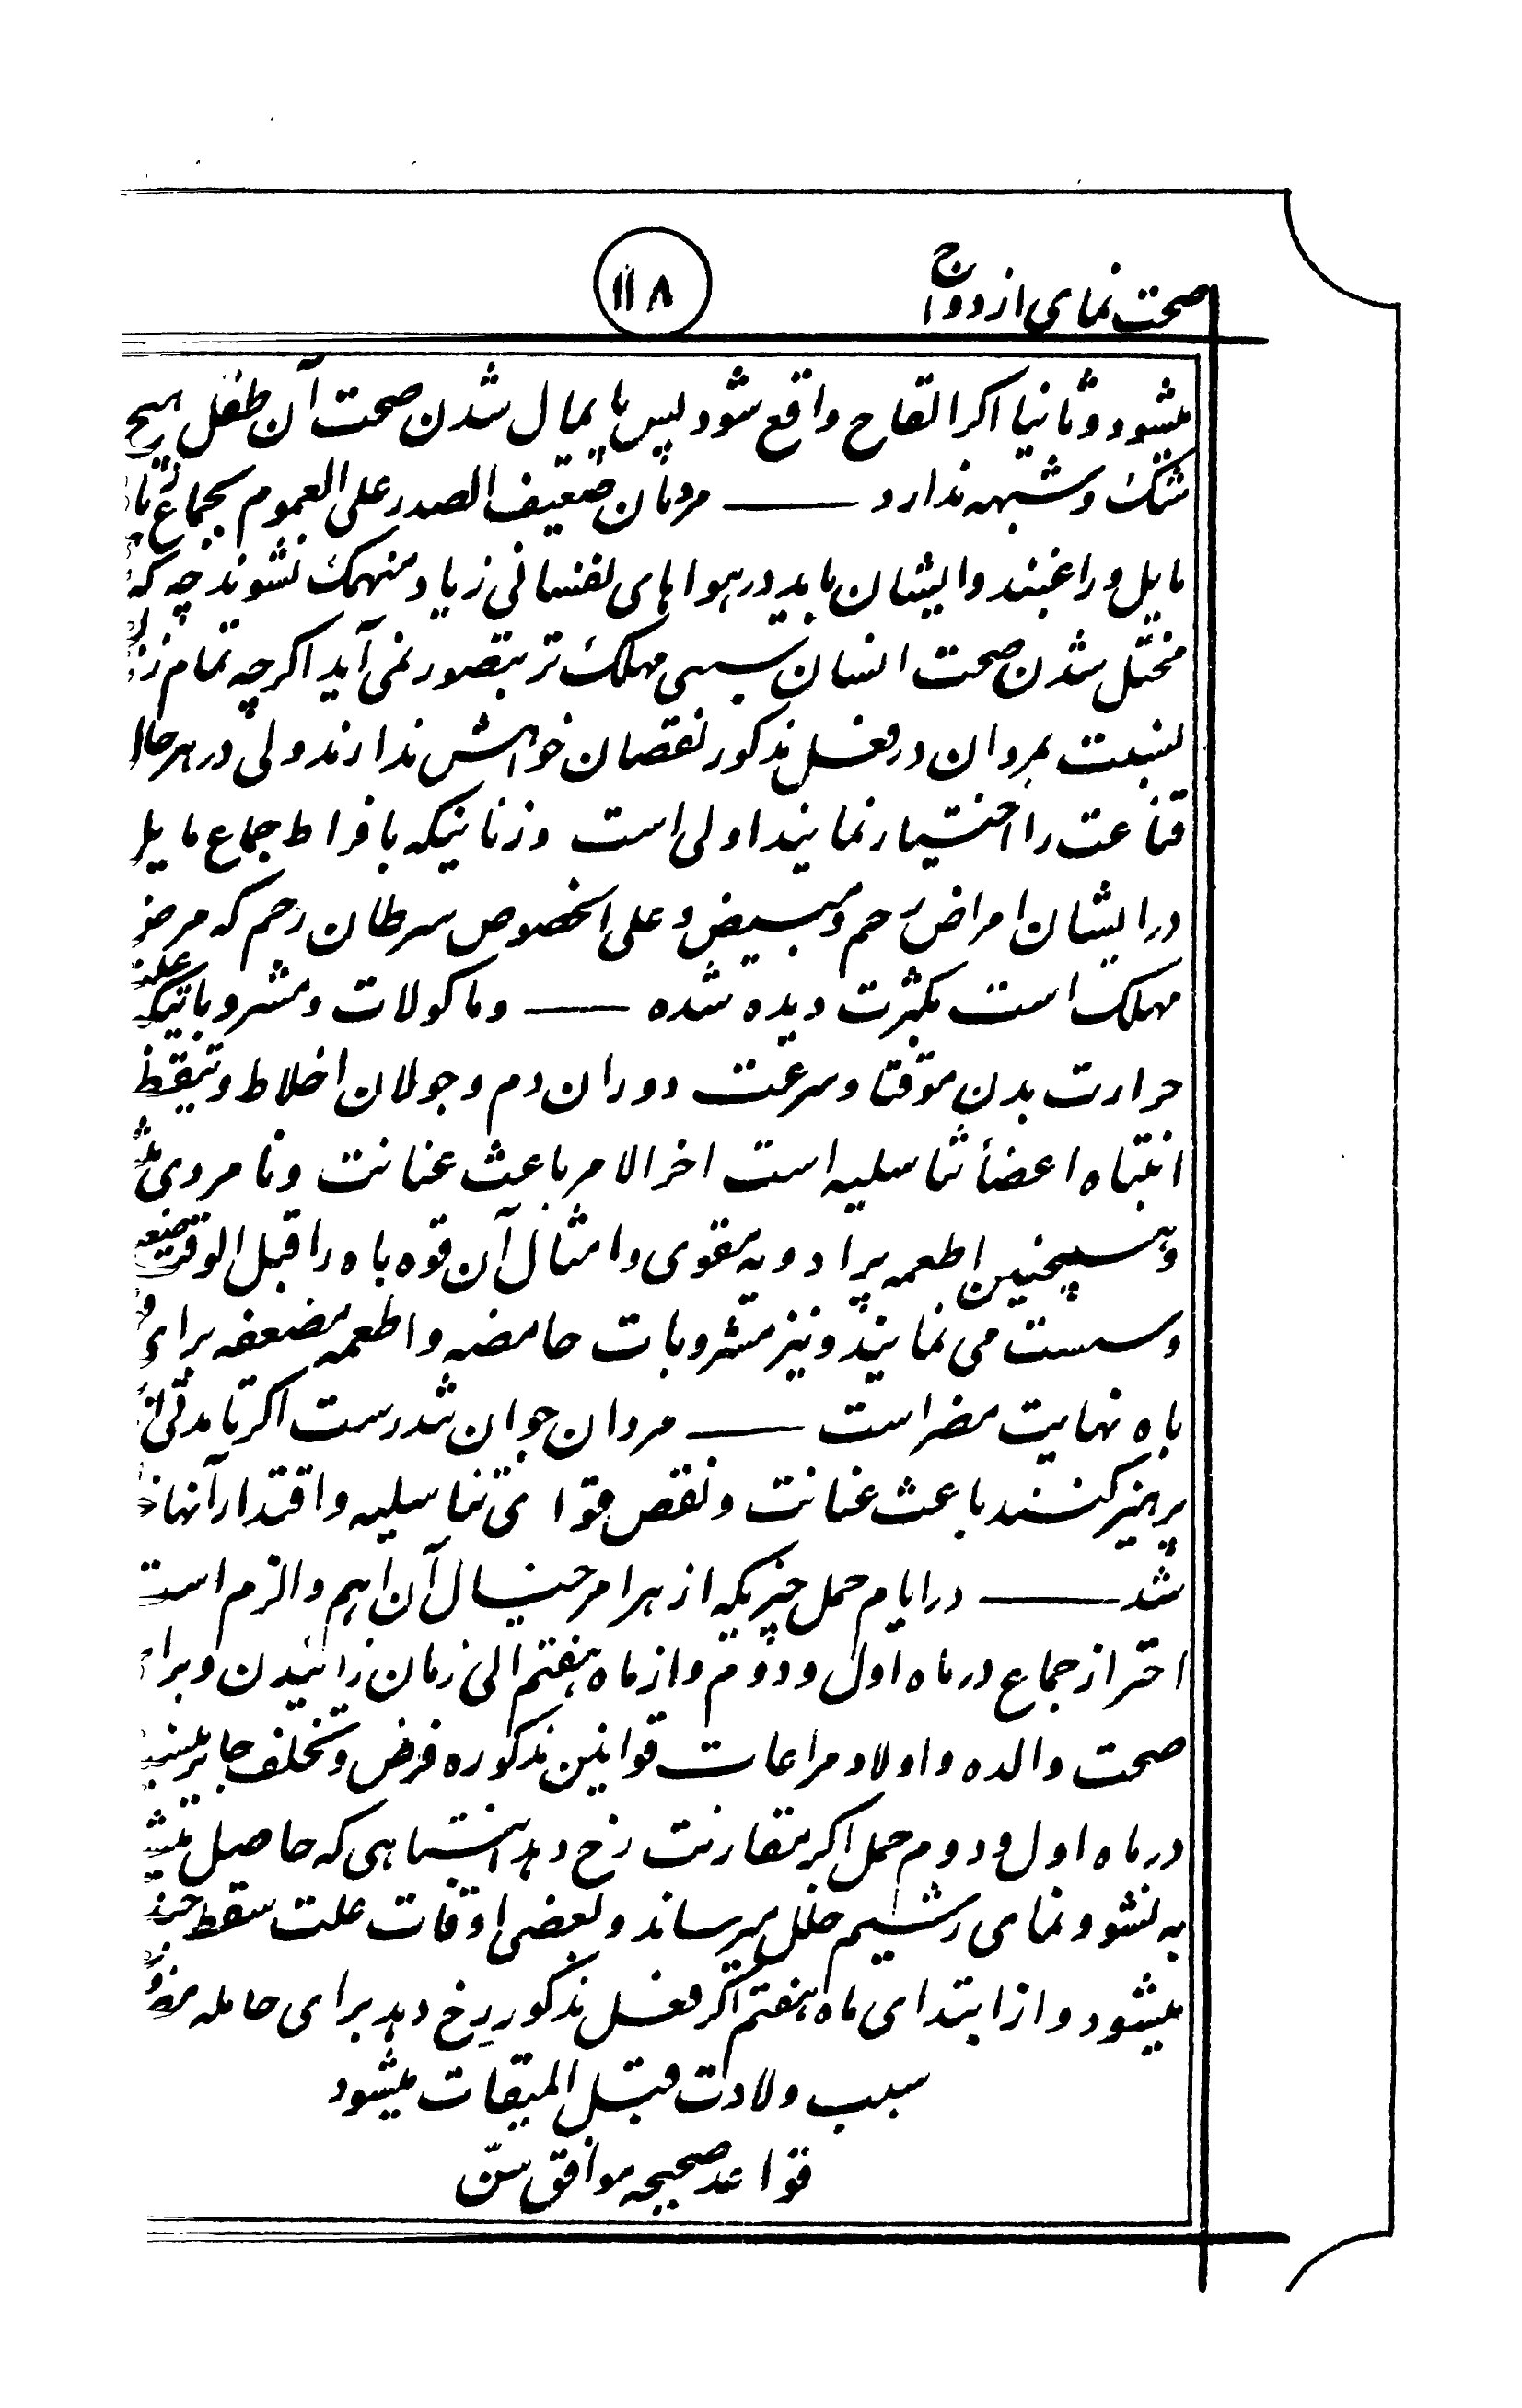 صحت نمای ازدواج
۱۱۸
میشود و ثانیا اکر القاح واقع شود پس پایمال شدن صحت آن طفل هیچ
شک و شبهه ندارد — مردمان ضعیف الصدر علی العموم بجماع
مایل و راغبند و ایشان باید در هواهای نفسانی زیاد منهمک نشوند چه که
مختل شدن صحت انسان سببی مهلک تر بتصور نمی آید اکرچه تمام
نسبت بمردان در فعل مذکور نقصان خواهش ندارند ولی در هر حال
قناعت را اختیار نمایند اولی است و زنانیکه بافراط جماع مایل
در ایشان امراض رحم و مبیض و علی الخصوص سرطان رحم که مرض
مهلک است بکثرت دیده شده — و ماکولات و مشروباتیکه
حرارت بدن موقتا و سرعت دوران دم و جولان اخلاط و تیقظ
انتباه اعضأ تناسلیه است اخر الامر باعث عنانت و نامردی
و همچنین اطعمه پر ادویه مقوی و امثال آن قوه باه را قبل الوقت
و سست می نمایند و نیز مشروبات حامضه و اطعمه مضعفه برای
باه نهایت مضر است — مردان جوان تندرست اکر تا مدتی
پرهیز کنند باعث عنانت و نقص قوای تناسلیه و اقتدار آنها
شد — در ایام حمل چیزیکه از هر امر خیال آن اهم و الزم است
احتراز جماع در ماه اول و دوم و از ماه هفتم الی زمان زائیدن و برای
صحت والده و اولاد مراعات قوانین مذکوره فرض و تخلف جایز
در ماه اول و دوم حمل اکر مقارنت رخ دهد انتباهی که حاصل
به نشو و نمای رشیم خلل میرساند و بعضی اوقات علت سقط
میشود و از ابتدای ماه هفتم اکر فعل مذکور رخ دهد برای حامله
سبب ولادت قبل المیقات میشود
قواعد صحیحه موافق سن